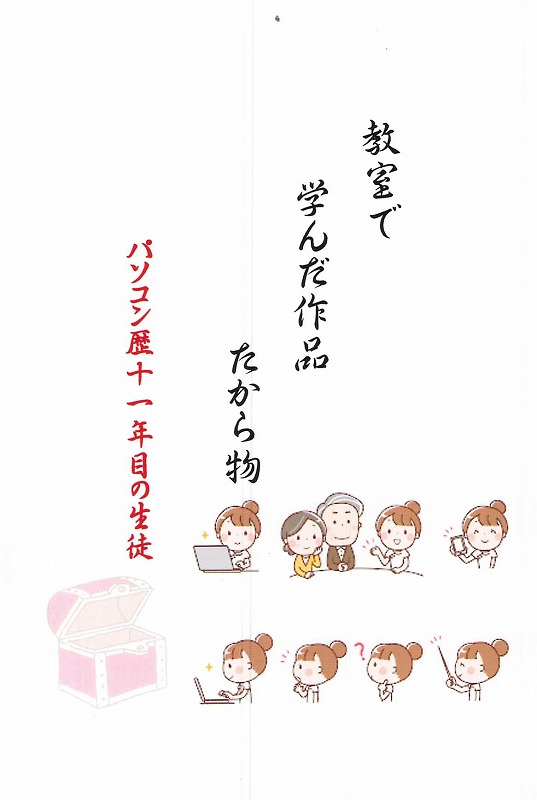 教室で
学んだ作品
たから物
パソコン歴十一年目の生徒
?